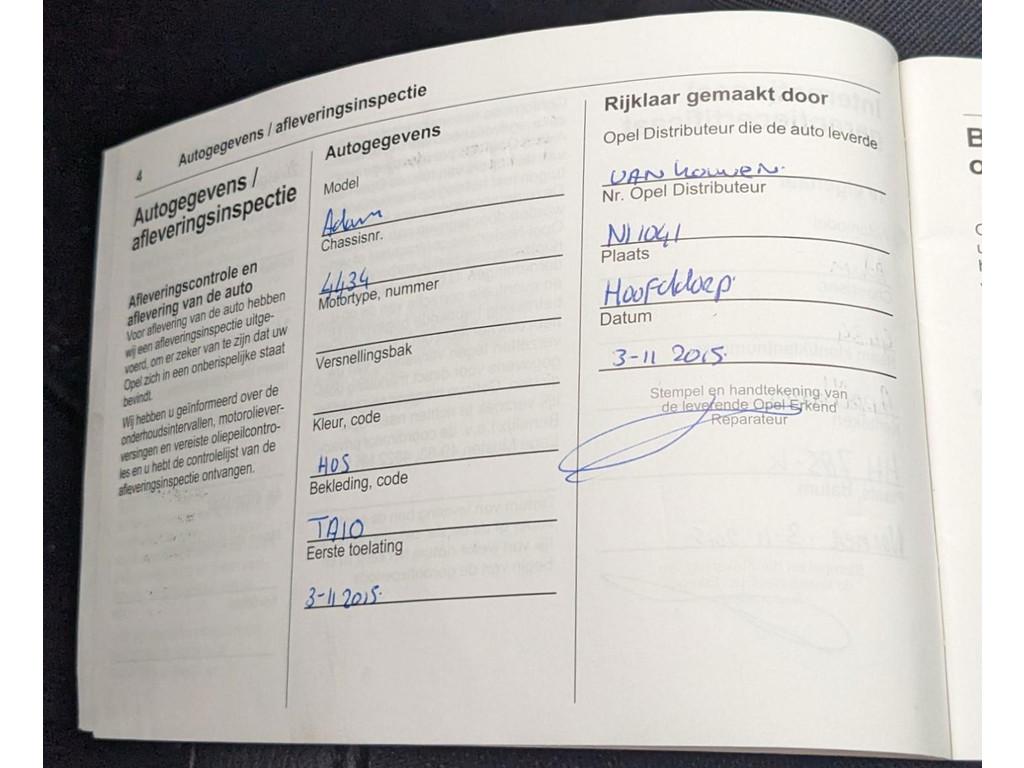 4
Autogegevens / afleveringsinspectie
Autogegevens /
afleveringsinspectie
Afleveringscontrole en
aflevering van de auto
Voor aflevering van de auto hebben
wij een afleveringsinspectie uitge-
voerd, om er zeker van te zijn dat uw
Opel zich in een onberispelijke staat
bevindt.
Wij hebben u geïnformeerd over de
onderhoudsintervallen, motoroliever-
versingen en vereiste oliepeilcontro-
les en u hebt de controlelijst van de
afleveringsinspectie ontvangen.
Autogegevens
Model
Adam
Chassisnr.
4434
Motortype, nummer
Versnellingsbak
Kleur, code
HOS
Bekleding, code
TAIO
Eerste toelating
3-11 2015.
Rijklaar gemaakt door
Opel Distributeur die de auto leverde
VAN
Nr. Opel Distributeur
Nl 1041
Plaats
Hoofddorp.
Datum
3-11 2015.
Stempel en handtekening van
de leverende Opel Erkend
Reparateur
B